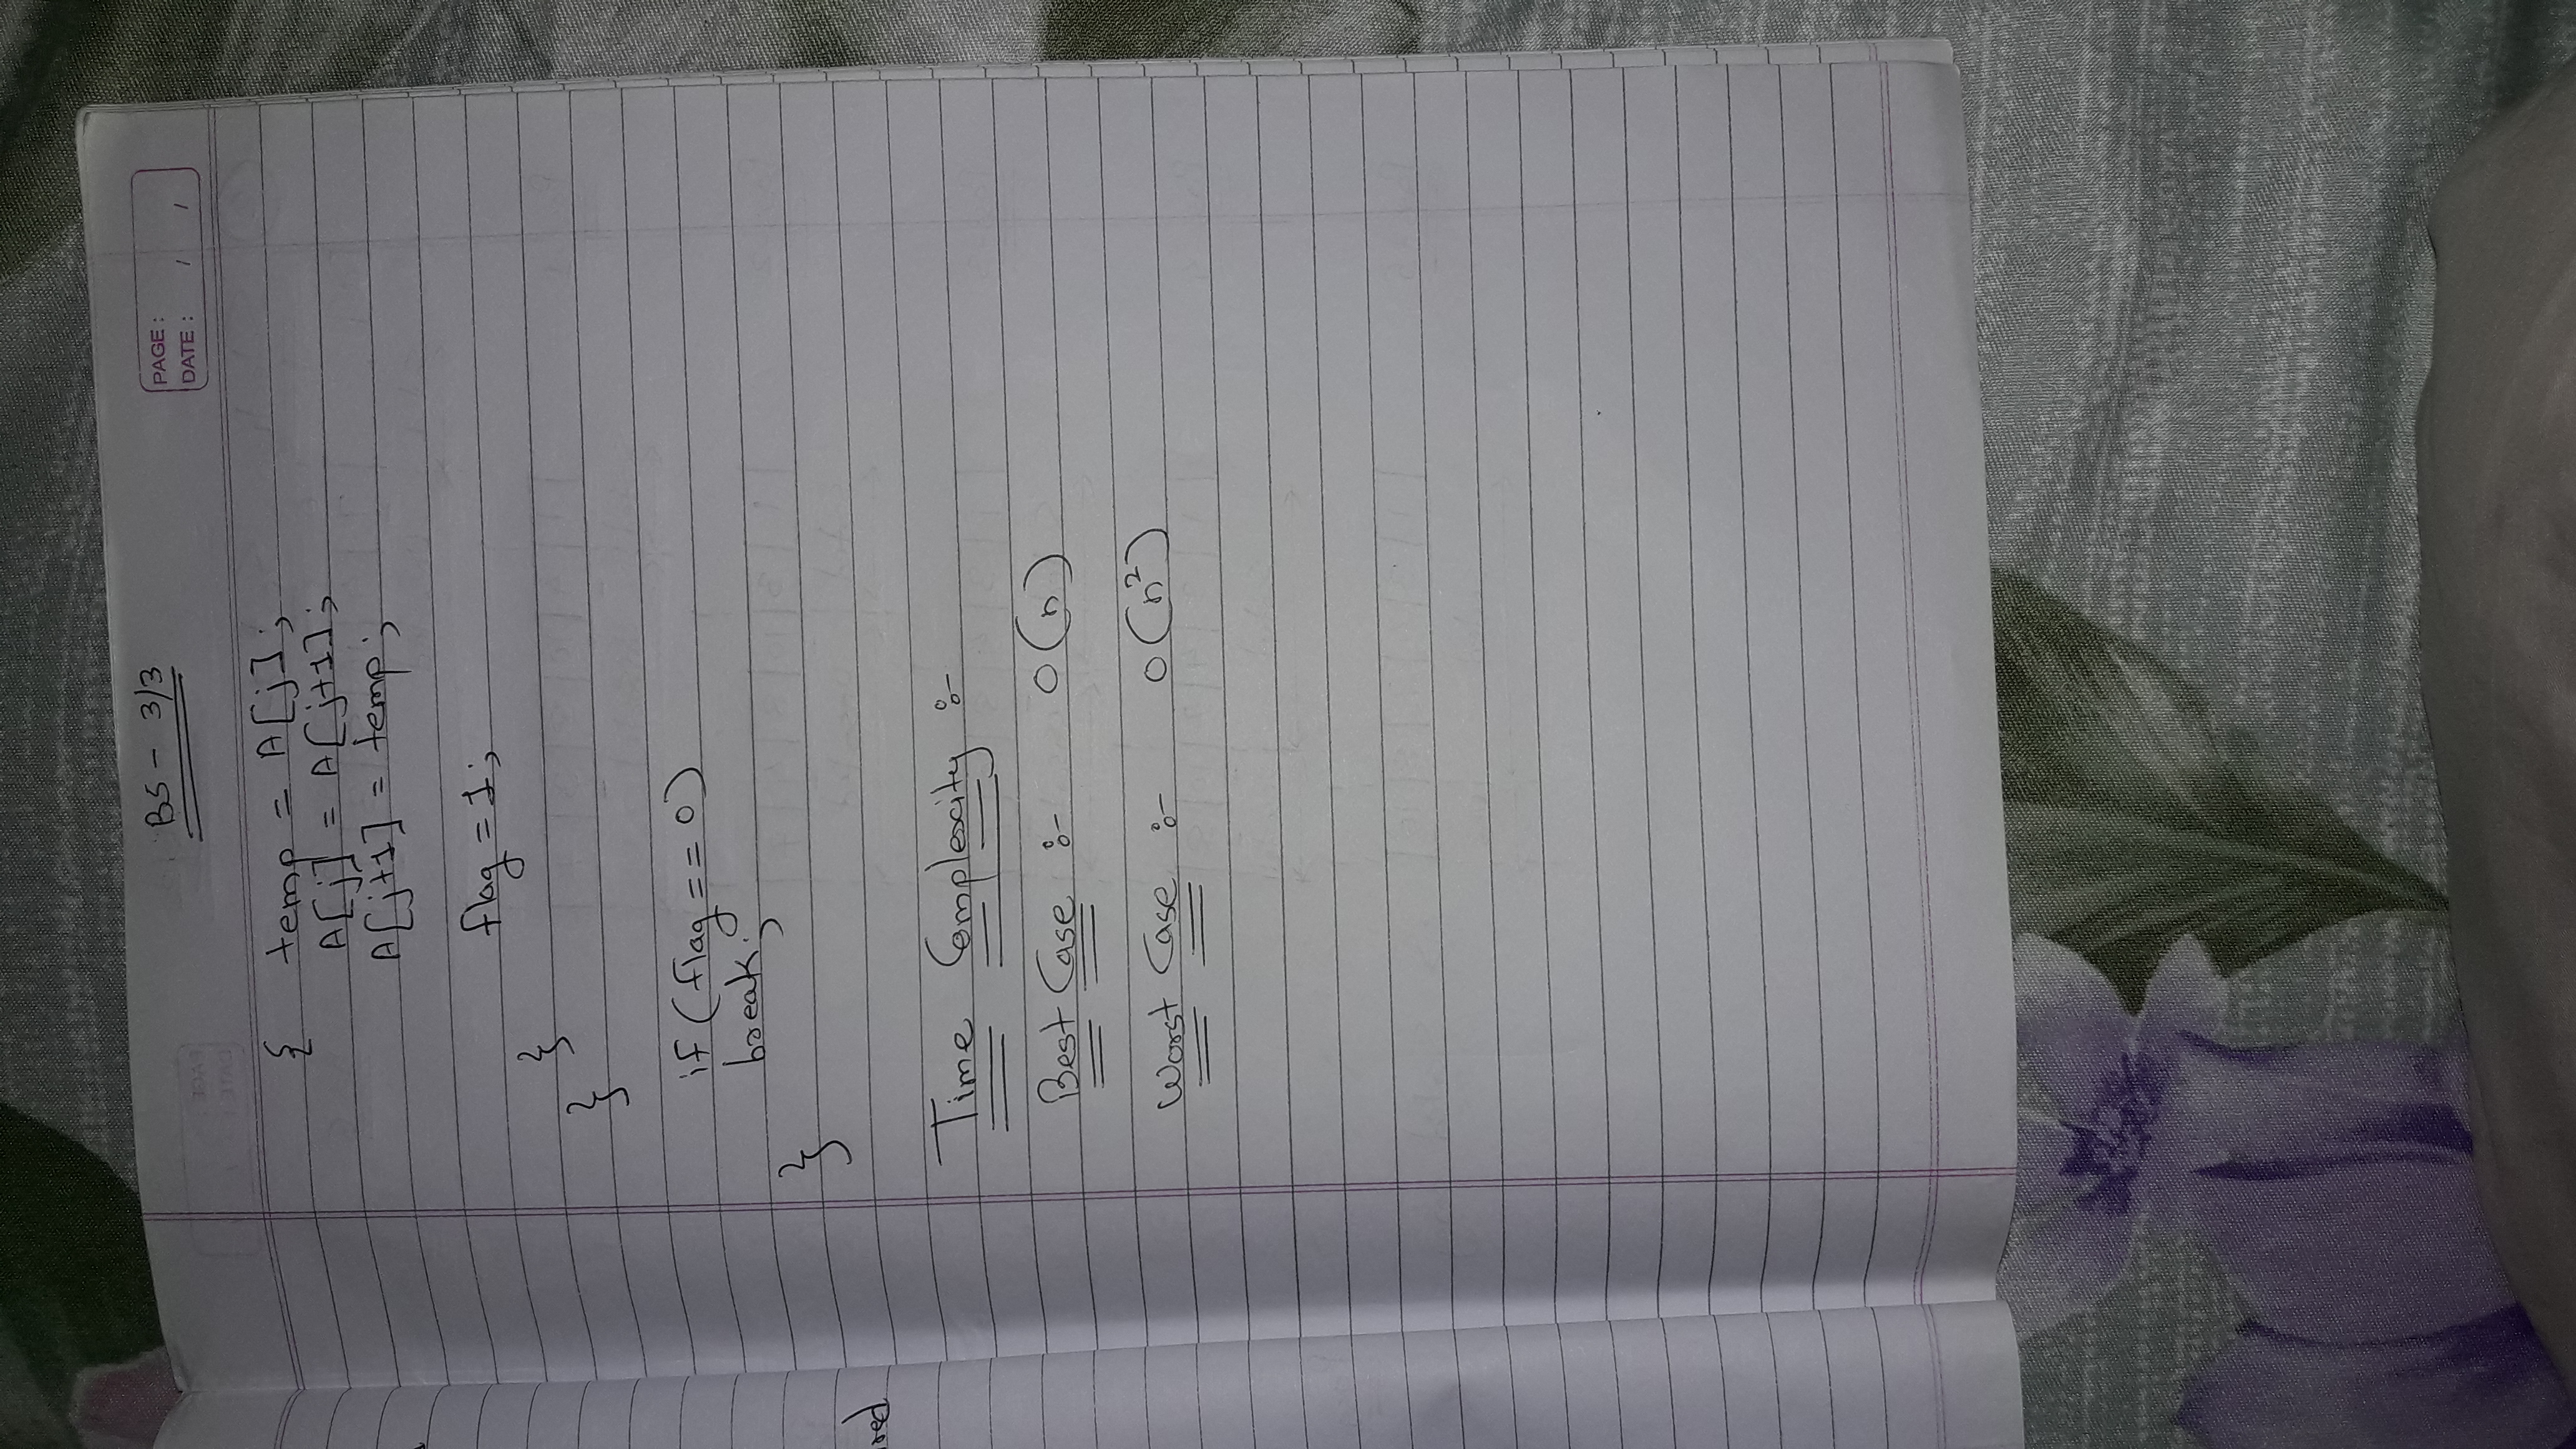 BS - 3/3
PAGE :
DATE : / /
{ temp = A[j];
A[j] = A[j+1];
A[j+1] = temp;
flag = 1;
}
}
if (flag == 0)
break;
}
Time Complexity :-
Best Case :- O(n)
Worst Case :- O(n²)